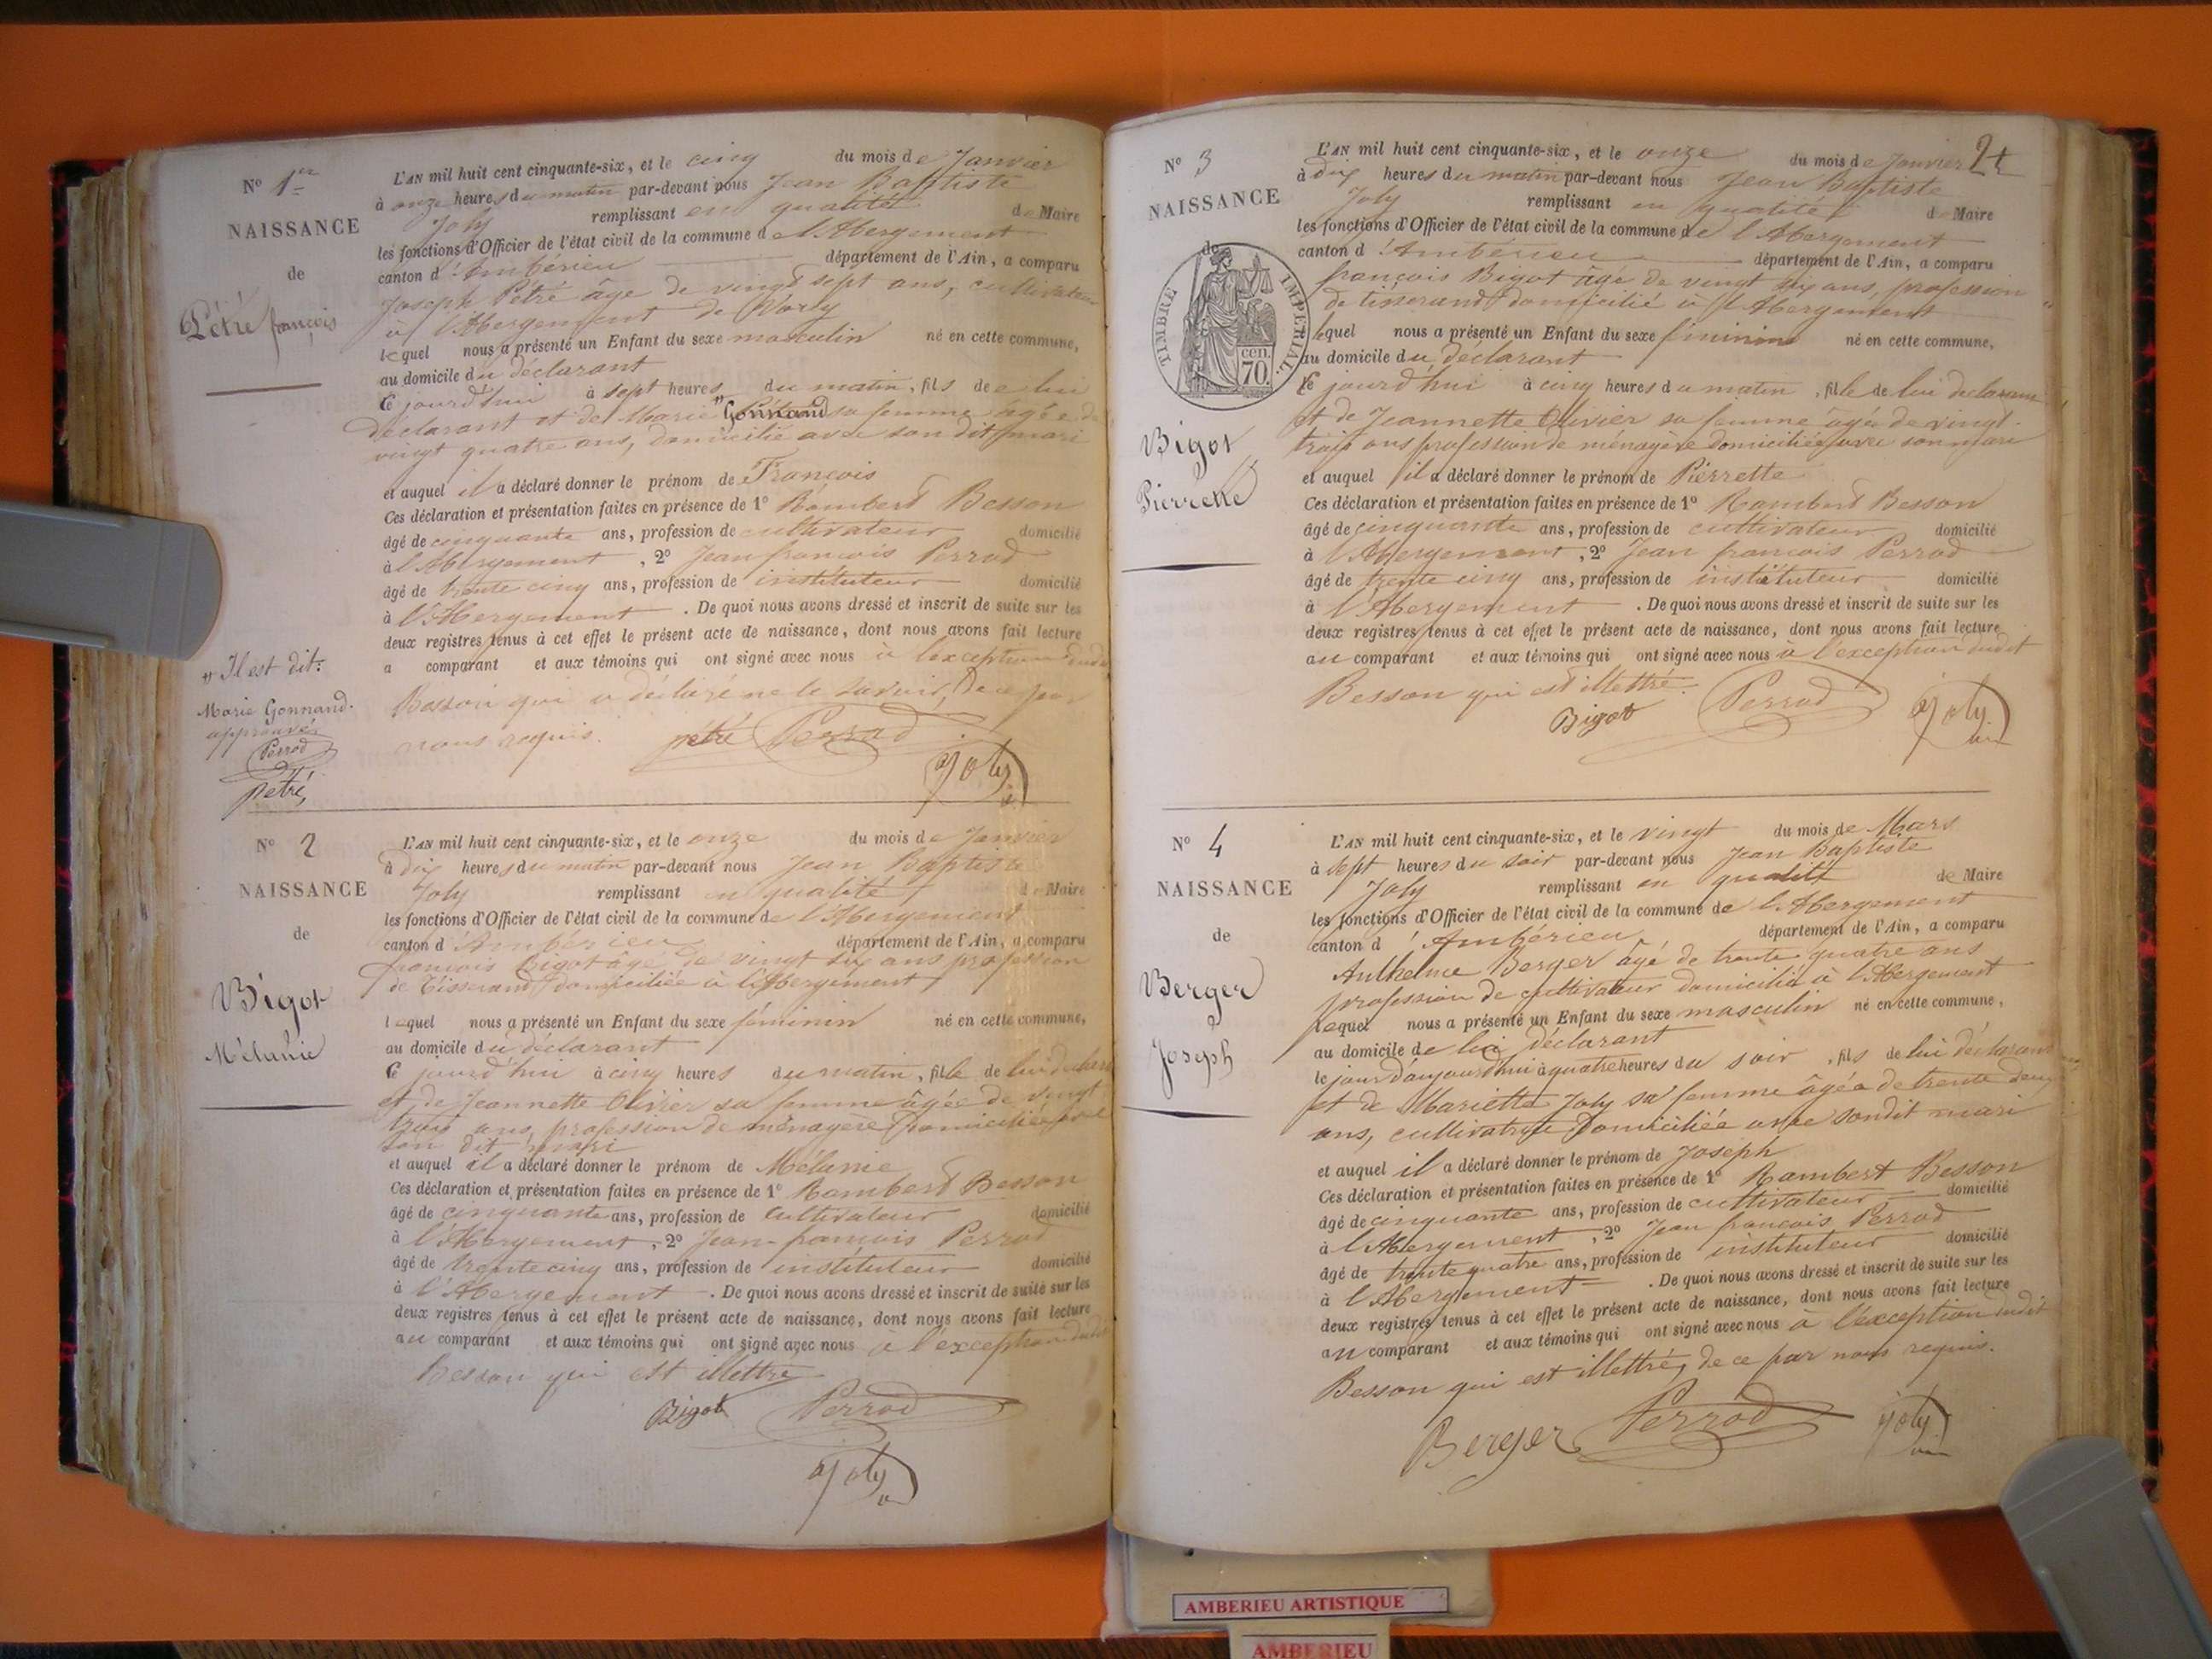 N° 1er
NAISSANCE
de
Pétré françois
L'AN mil huit cent cinquante-six, et le cinq du mois de Janvier
à onze heures du matin par-devant nous Jean Baptiste
Joly remplissant en qualité de Maire
les fonctions d'Officier de l'état civil de la commune de l'Abergement
canton d'Ambérieu département de l'Ain, a comparu
Joseph Pétré âgé de vingt sept ans, cultivateur
à l'Abergement de Varey
lequel nous a présenté un Enfant du sexe masculin né en cette commune,
au domicile du déclarant
ce jourd'hui à sept heures du matin, fils de lui
déclarant et de Marie " Gonnand sa femme âgée de
vingt quatre ans, domicilié avec son dit mari
et auquel il a déclaré donner le prénom de François
Ces déclaration et présentation faites en présence de 1° Rambert Besson
âgé de cinquante ans, profession de cultivateur domicilié
à l'Abergement, 2° Jean françois Perrod
âgé de trente cinq ans, profession de instituteur domicilié
à l'Abergement. De quoi nous avons dressé et inscrit de suite sur les
deux registres tenus à cet effet le présent acte de naissance, dont nous avons fait lecture
a comparant et aux témoins qui ont signé avec nous à l'exception dudit
Besson qui a déclaré ne le savoir, de ce par
nous requis. pétré Perrod
Joly
" Il est dit:
Marie Gonnand.
approuvé
Perrod
pétré,
N° 2
NAISSANCE
de
Bigot
Mélanie
L'AN mil huit cent cinquante-six, et le onze du mois de Janvier
à dix heures du matin par-devant nous Jean Baptiste
Joly remplissant en qualité de Maire
les fonctions d'Officier de l'état civil de la commune de l'Abergement
canton d'Ambérieu département de l'Ain, a comparu
françois Bigot âgé de vingt six ans profession
de Tisserand domiciliée à l'Abergement
lequel nous a présenté un Enfant du sexe féminin né en cette commune,
au domicile du déclarant
ce jourd'hui à cinq heures du matin, fille de lui
et de Jeannette Olivier sa femme âgée de vingt
trois ans profession de ménagère domiciliée
son dit mari
et auquel il a déclaré donner le prénom de Mélanie
Ces déclaration et présentation faites en présence de 1° Rambert Besson
âgé de cinquante ans, profession de Cultivateur domicilié
à l'Abergement, 2° Jean-françois Perrod
âgé de trente cinq ans, profession de instituteur domicilié
à l'Abergement. De quoi nous avons dressé et inscrit de suite sur les
deux registres tenus à cet effet le présent acte de naissance, dont nous avons fait lecture
au comparant et aux témoins qui ont signé avec nous à l'exception dudit
Besson qui est illettré
Bigot Perrod
Joly
24
N° 3
NAISSANCE
de
TIMBRE IMPERIAL.
70 cen.
Bigot
Pierrette
L'AN mil huit cent cinquante-six, et le onze du mois de Janvier
à dix heures du matin par-devant nous Jean Baptiste
Joly remplissant en qualité de Maire
les fonctions d'Officier de l'état civil de la commune de l'Abergement
canton d'Ambérieu département de l'Ain, a comparu
françois Bigot âgé de vingt six ans, profession
de tisserand domicilié à l'Abergement
lequel nous a présenté un Enfant du sexe féminin né en cette commune,
au domicile du déclarant
ce jourd'hui à cinq heures du matin, fille de lui déclarant
et de Jeannette Olivier sa femme âgée de vingt-
trois ans profession de ménagère domiciliée avec son mari
et auquel il a déclaré donner le prénom de Pierrette
Ces déclaration et présentation faites en présence de 1° Rambert Besson
âgé de cinquante ans, profession de cultivateur domicilié
à l'Abergement, 2° Jean françois Perrod
âgé de trente cinq ans, profession de instituteur domicilié
à l'Abergement. De quoi nous avons dressé et inscrit de suite sur les
deux registres tenus à cet effet le présent acte de naissance, dont nous avons fait lecture
au comparant et aux témoins qui ont signé avec nous à l'exception dudit
Besson qui est illettré.
Bigot Perrod Joly
N° 4
NAISSANCE
de
Berger
Joseph
L'AN mil huit cent cinquante-six, et le vingt du mois de Mars
à sept heures du soir par-devant nous Jean Baptiste
Joly remplissant en qualité de Maire
les fonctions d'Officier de l'état civil de la commune de l'Abergement
canton d'Ambérieu département de l'Ain, a comparu
Anthelme Berger âgé de trente quatre ans
profession de cultivateur domicilié à l'Abergement
lequel nous a présenté un Enfant du sexe masculin né en cette commune,
au domicile de lui déclarant
le jour d'aujourd'hui à quatre heures du soir, fils de lui déclarant
et de Mariette Joly sa femme âgée de trente deux
ans, cultivatrice Domiciliée avec sondit mari
et auquel il a déclaré donner le prénom de Joseph
Ces déclaration et présentation faites en présence de 1° Rambert Besson
âgé de cinquante ans, profession de cultivateur domicilié
à l'Abergement, 2° Jean françois Perrod
âgé de trente quatre ans, profession de instituteur domicilié
à l'Abergement. De quoi nous avons dressé et inscrit de suite sur les
deux registres tenus à cet effet le présent acte de naissance, dont nous avons fait lecture
au comparant et aux témoins qui ont signé avec nous à l'exception dudit
Besson qui est illettré, de ce par nous requis.
Berger Perrod Joly
AMBERIEU ARTISTIQUE
AMBERIEU